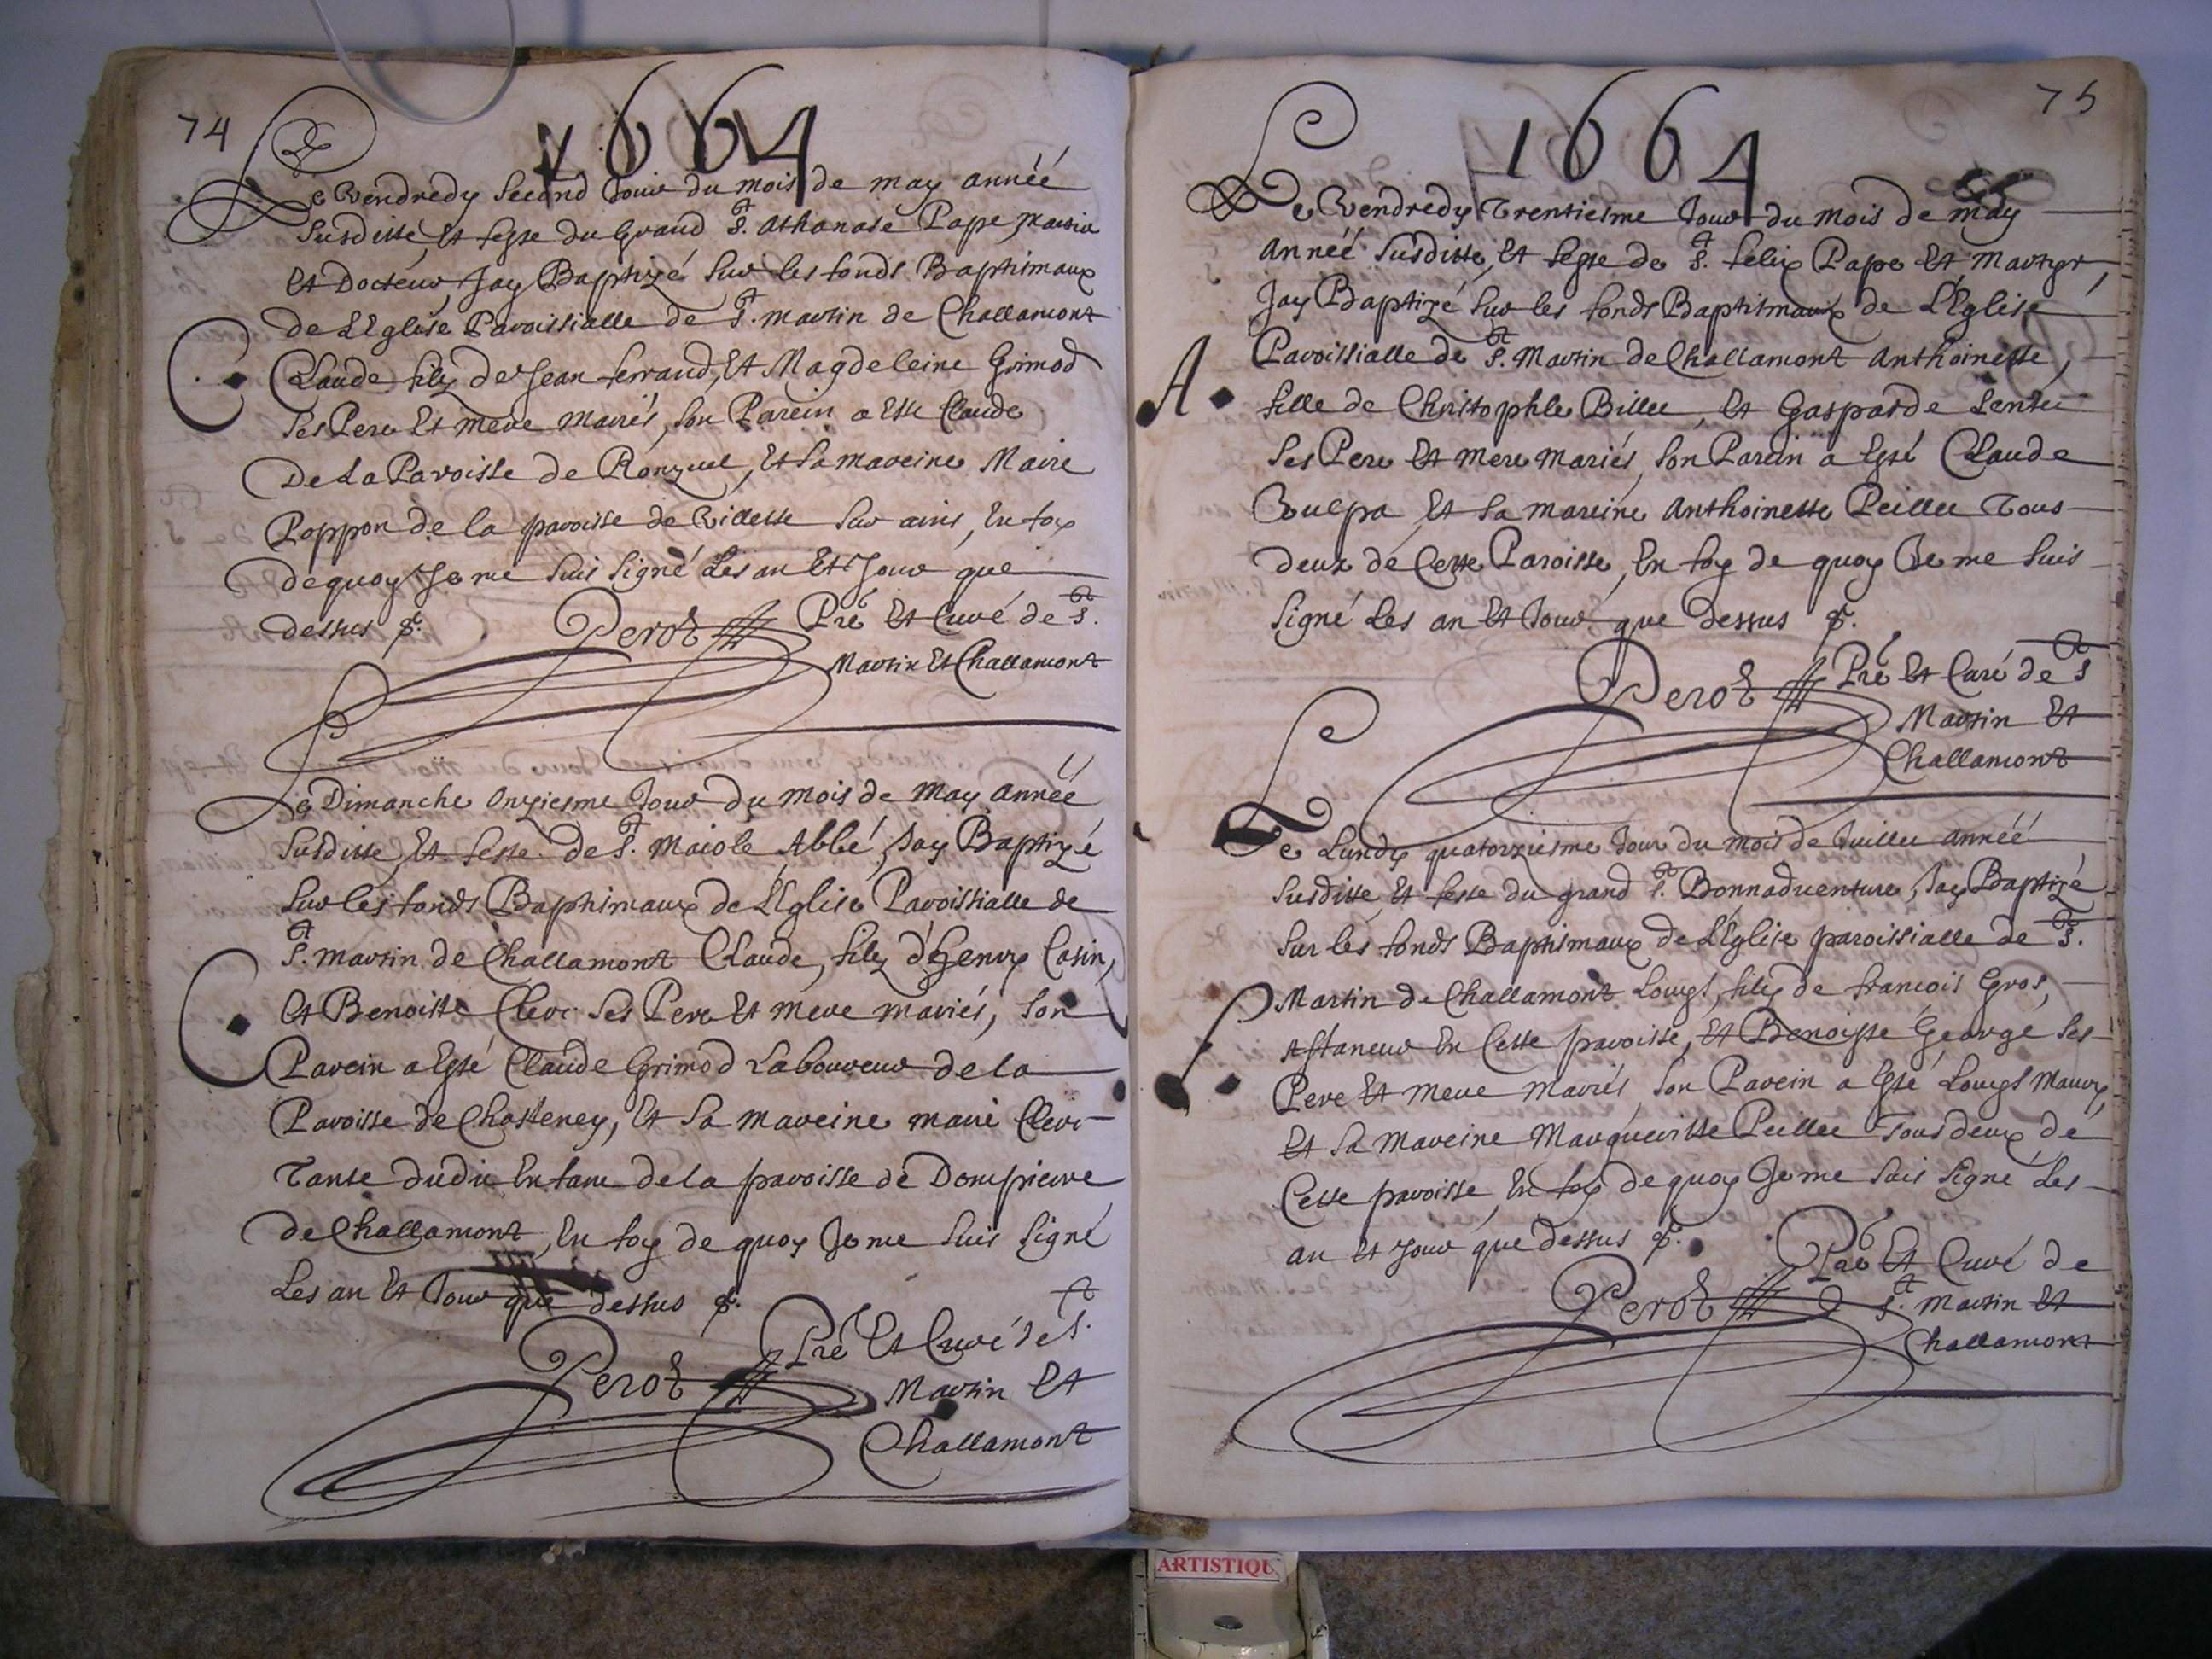 74
1664
Le Vendredy Second Jour du mois de may année
susditte, et feste du Grand St. Athanase Pape, martir
et Docteur, Jay Baptizé sur les fonds Baptismaux
de L'Eglise Paroissialle de St. martin de Challamont
C
Claude filz de Jean ferrand, et Magdeleine Grimod
ses Pere et mere mariés, son Parein a esté Claude
De La Paroisse de Ronzuel, et sa mareine Marie
Poppon de la paroisse de Villette sur ains, En foy
de quoy Je me suis signé Les an et Jour que
dessus &.
Perot Pre et Curé de St.
Martin et Challamont
Le Dimanche Onziesme Jour du mois de May année
susditte, et feste de St. Maiole Abbé, Jay Baptizé
sur les fonds Baptismaux de L'Eglise Paroissialle de
St. martin de Challamont Claude, filz d'henry Casin,
C
et Benoiste Clerc ses Pere et mere mariés, son
Parein a Esté Claude Grimod Laboureur de la
Paroisse de Chasteney, et sa mareine marie Clerc
Tante dudit Enfant de la paroisse de Dompierre
de Challamont, En foy de quoy Je me suis signé
Les an et Jour que dessus &.
Perot Pre et Curé de St.
Martin et
Challamont
75
1664
Le Vendredy Trentiesme Jour du mois de may
année susditte, et feste de St. felix Pape et Martyr,
Jay Baptizé sur les fonds Baptismaux de L'Eglise
Paroissialle de St. Martin de Challamont Anthoinette,
A
fille de Christophle Billet, et Gasparde
ses Pere et mere mariés, son Parein a Esté Claude
Vulpa et sa mareine Anthoinette Peillet Tous
deux de Cette Paroisse, En foy de quoy Je me suis
signé Les an et Jour que dessus &.
Perot Pre et Curé de St
Martin et
Challamont
Le Lundy quatorziesme Jour du mois de Juillet année
susditte, et feste du grand St. Bonnadventure, Jay Baptizé
sur les fonds Baptismaux de L'Eglise paroissialle de St.
Martin de Challamont Louys, filz de francois Gros,
En Cette paroisse, et Benoiste George ses
Pere et mere mariés, son Parein a Esté Louys Maury,
et sa mareine Margueritte Peillet Tous deux de
Cette paroisse, En foy de quoy Je me suis signé Les
an et Jour que dessus &.
Perot Pre et Curé de
St. Martin et
Challamont
ARTISTIQU